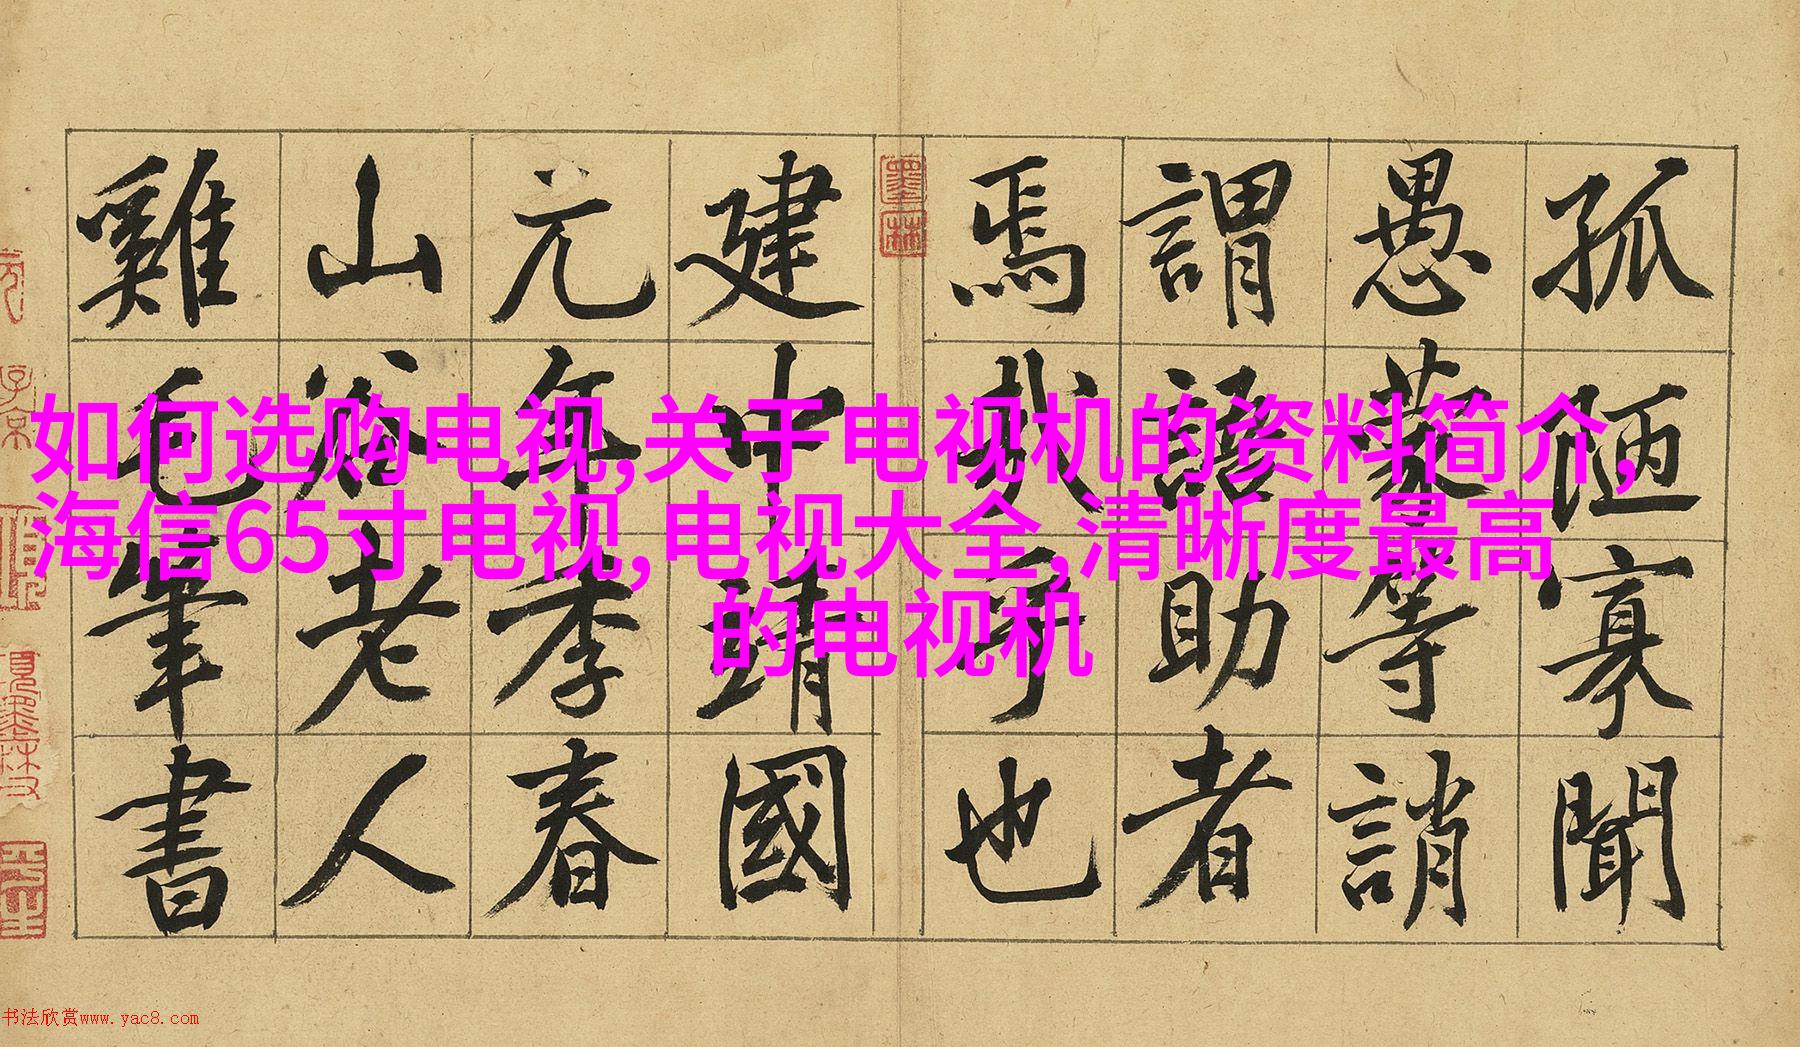 孤陋寡聞
愚蒙等誚
謂語助者
焉哉乎也
墨林
建中靖國
元年季春
山谷老人
雞毛筆書
如何选购电视,关于电视机的资料简介,
海信65寸电视,电视大全,清晰度最高
的电视机
书法欣赏www.yac8.com